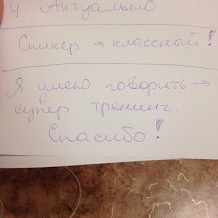 4. Актуально
Спикер → классный!
Я умею говорить →
супер тренинг.
Спасибо!